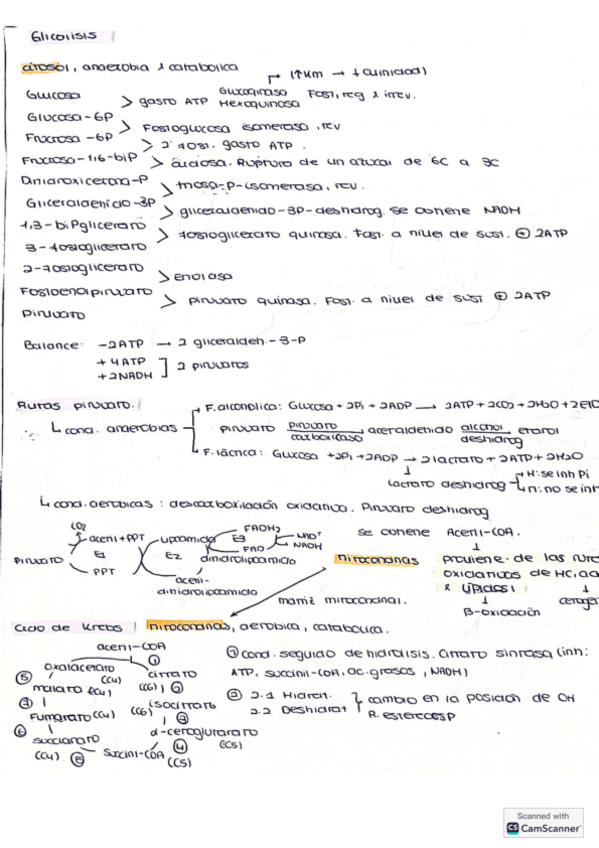 Glicolisis
citosol, anaerobia y catabolica
(↑Km → ↓ afinidad)
Glucosa > gasto ATP Glucoquinasa Hexoquinasa Fosf, reg e irrev.
Glucosa-6P > Fosfoglucosa isomerasa, rev
Frucrosa-6P > 2ª fosf. gasto ATP.
Frucrosa-1,6-biP > aldolasa. Ruptura de un azucar de 6C a 3C
Dihidroxicetona-P > triosa-P-isomerasa, rev.
Gliceraldehido-3P > gliceraldehido-3P-deshidrog. se obtiene NADH
1,3-biPglicerato > fosfoglicerato quinasa. Fosf. a nivel de sust. ⊕ 2ATP
3-fosfoglicerato
2-fosfoglicerato > enolasa
Fosfoenolpiruvato > piruvato quinasa. Fosf. a nivel de sust ⊕ 2ATP
Piruvato
Balance: -2ATP → 2 gliceraldeh-3-P
+4ATP
+2NADH ] 2 piruvatos
Rutas piruvato.
F. alcoholica: Glucosa + 2Pi + 2ADP → 2ATP + 2CO2 + 2H2O + 2EtO
↳ cond. anaerobias
piruvato piruvato carboxilasa acetaldehido alcohol deshidrog etanol
F. láctica: Glucosa + 2Pi + 2ADP → 2 lactato + 2ATP + 2H2O
Lactato deshidrog
H: se inh Pi
n: no se inh
↳ cond. aerobicas: descarboxilación oxidativa. Piruvato deshidrog
CO2
acetil+PPT
Piruvato
E1
PPT
lipoamida
E2
acetil-dihidrolipoamida
FADH2
E3
FAD
NAD+
NADH
dihidrolipoamida
se obtiene Acetil-CoA.
mitocondrias
proviene de las ruta
oxidativas de HC, aa
y lípidos
β-oxidación
cetoger
matriz mitocondrial.
Ciclo de Krebs / mitocondrias, aerobica, catabolica.
acetil-CoA
①
⑧
oxalacetato (C4)
citrato (C6) ②
malato (C4)
isocitrato (C6)
⑦
③
Fumarato (C4)
α-cetoglutarato (C5)
⑥
④
succinato (C4)
⑤
Succinil-CoA
① cond. seguido de hidrolisis. Citrato sintasa (inh:
ATP, succinil-CoA, ac. grasos, NADH)
② 2.1 Hidrat.
2.2 Deshidrat
cambio en la posición de OH
R. estereoesp
Scanned with
CS CamScanner